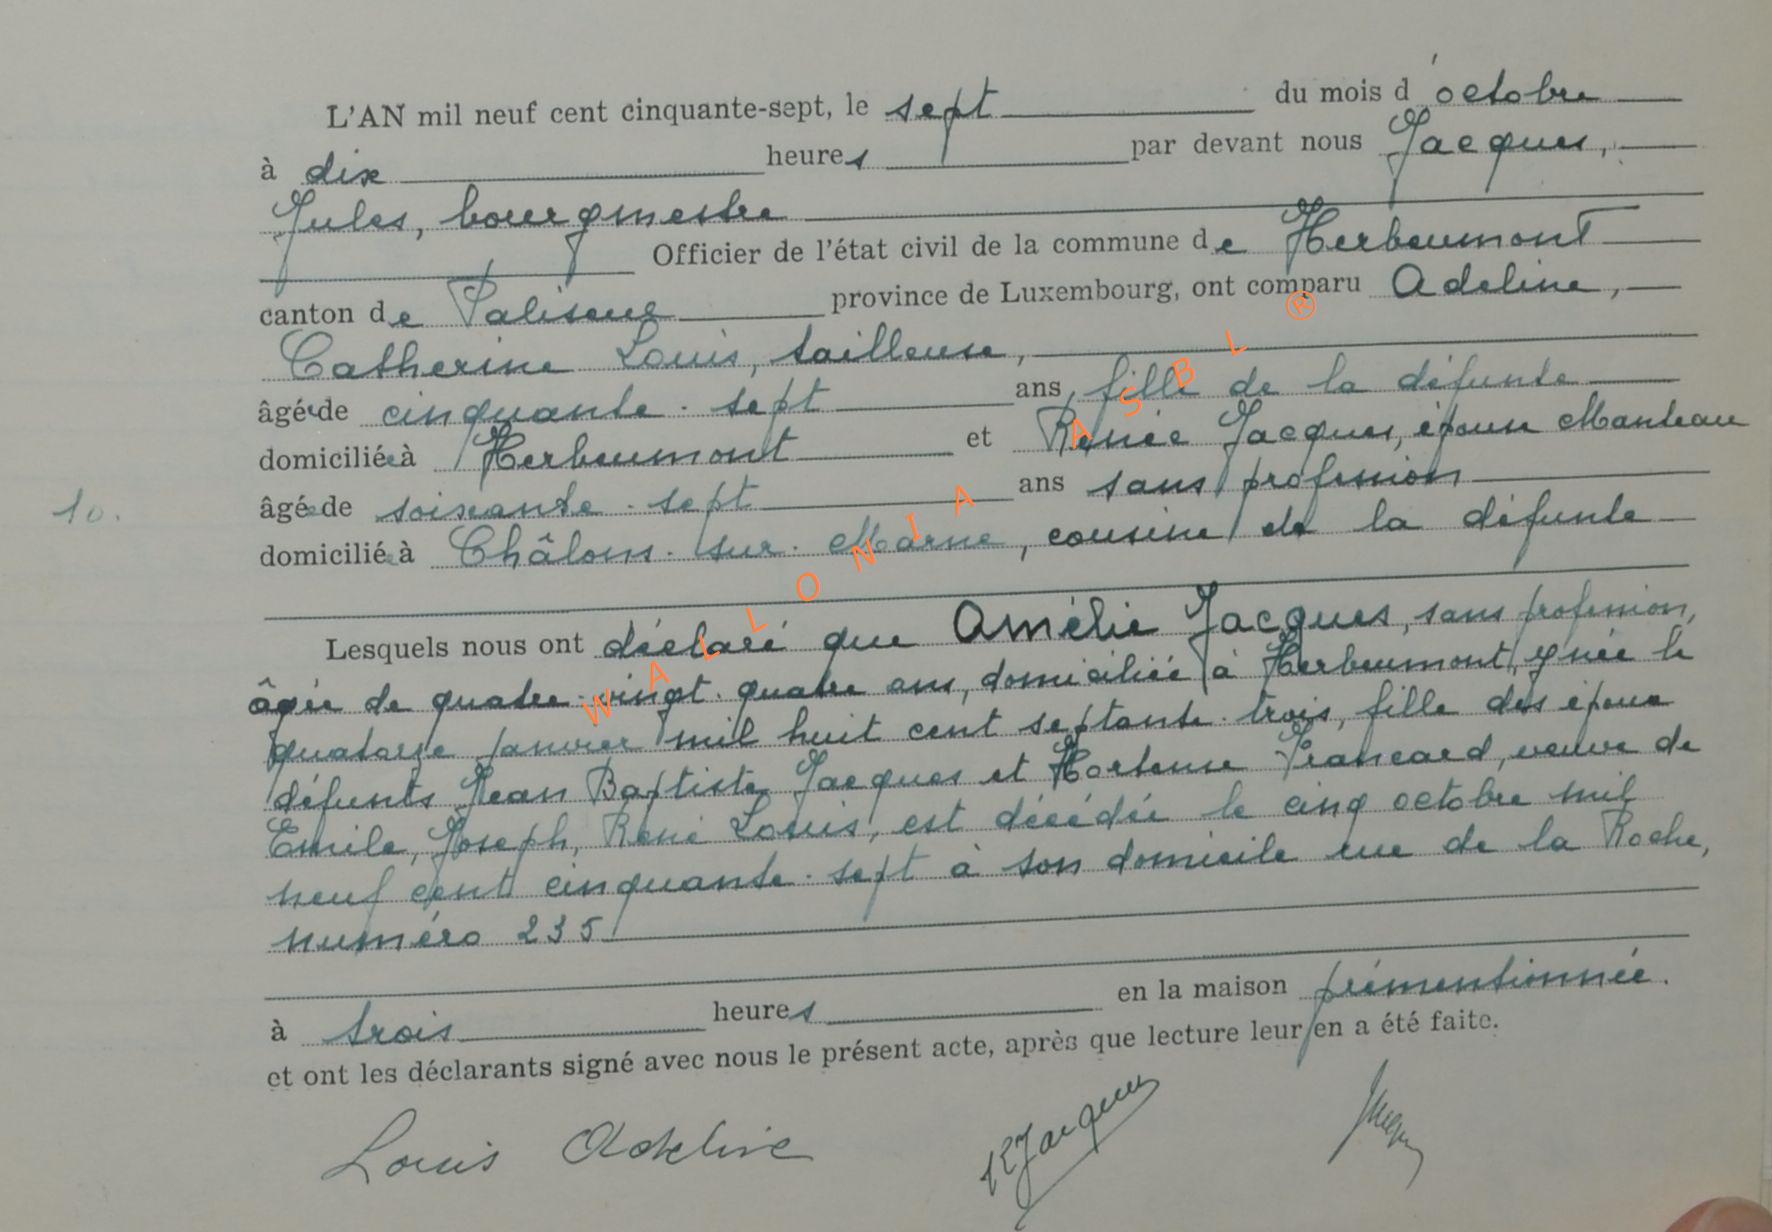 L'AN mil neuf cent cinquante-sept, le sept du mois d'octobre
à dix heures par devant nous Jacques,
Jules, bourgmestre
Officier de l'état civil de la commune de Herbeumont
canton de Paliseul province de Luxembourg, ont comparu Adeline,
Catherine Louis, tailleuse,
âgée de cinquante-sept ans, fille de la défunte
domiciliée à Herbeumont et Renée Jacques, épouse Manteau
âgée de soixante-sept ans sans profession
10.
domiciliée à Châlons-sur-Marne, cousine de la défunte
Lesquels nous ont déclaré que Amélie Jacques, sans profession,
âgée de quatre-vingt-quatre ans, domiciliée à Herbeumont, y née le
quatorze janvier mil huit cent septante-trois, fille des époux
défunts Jean Baptiste Jacques et Hortense Francard, veuve de
Emile, Joseph, René Louis, est décédée le cinq octobre mil
neuf cent cinquante-sept à son domicile rue de la Roche,
numéro 235
à trois heures en la maison prémentionnée.
et ont les déclarants signé avec nous le présent acte, après que lecture leur en a été faite.
Louis Adeline RJacques Jacques
WALLONIA ASBL ®